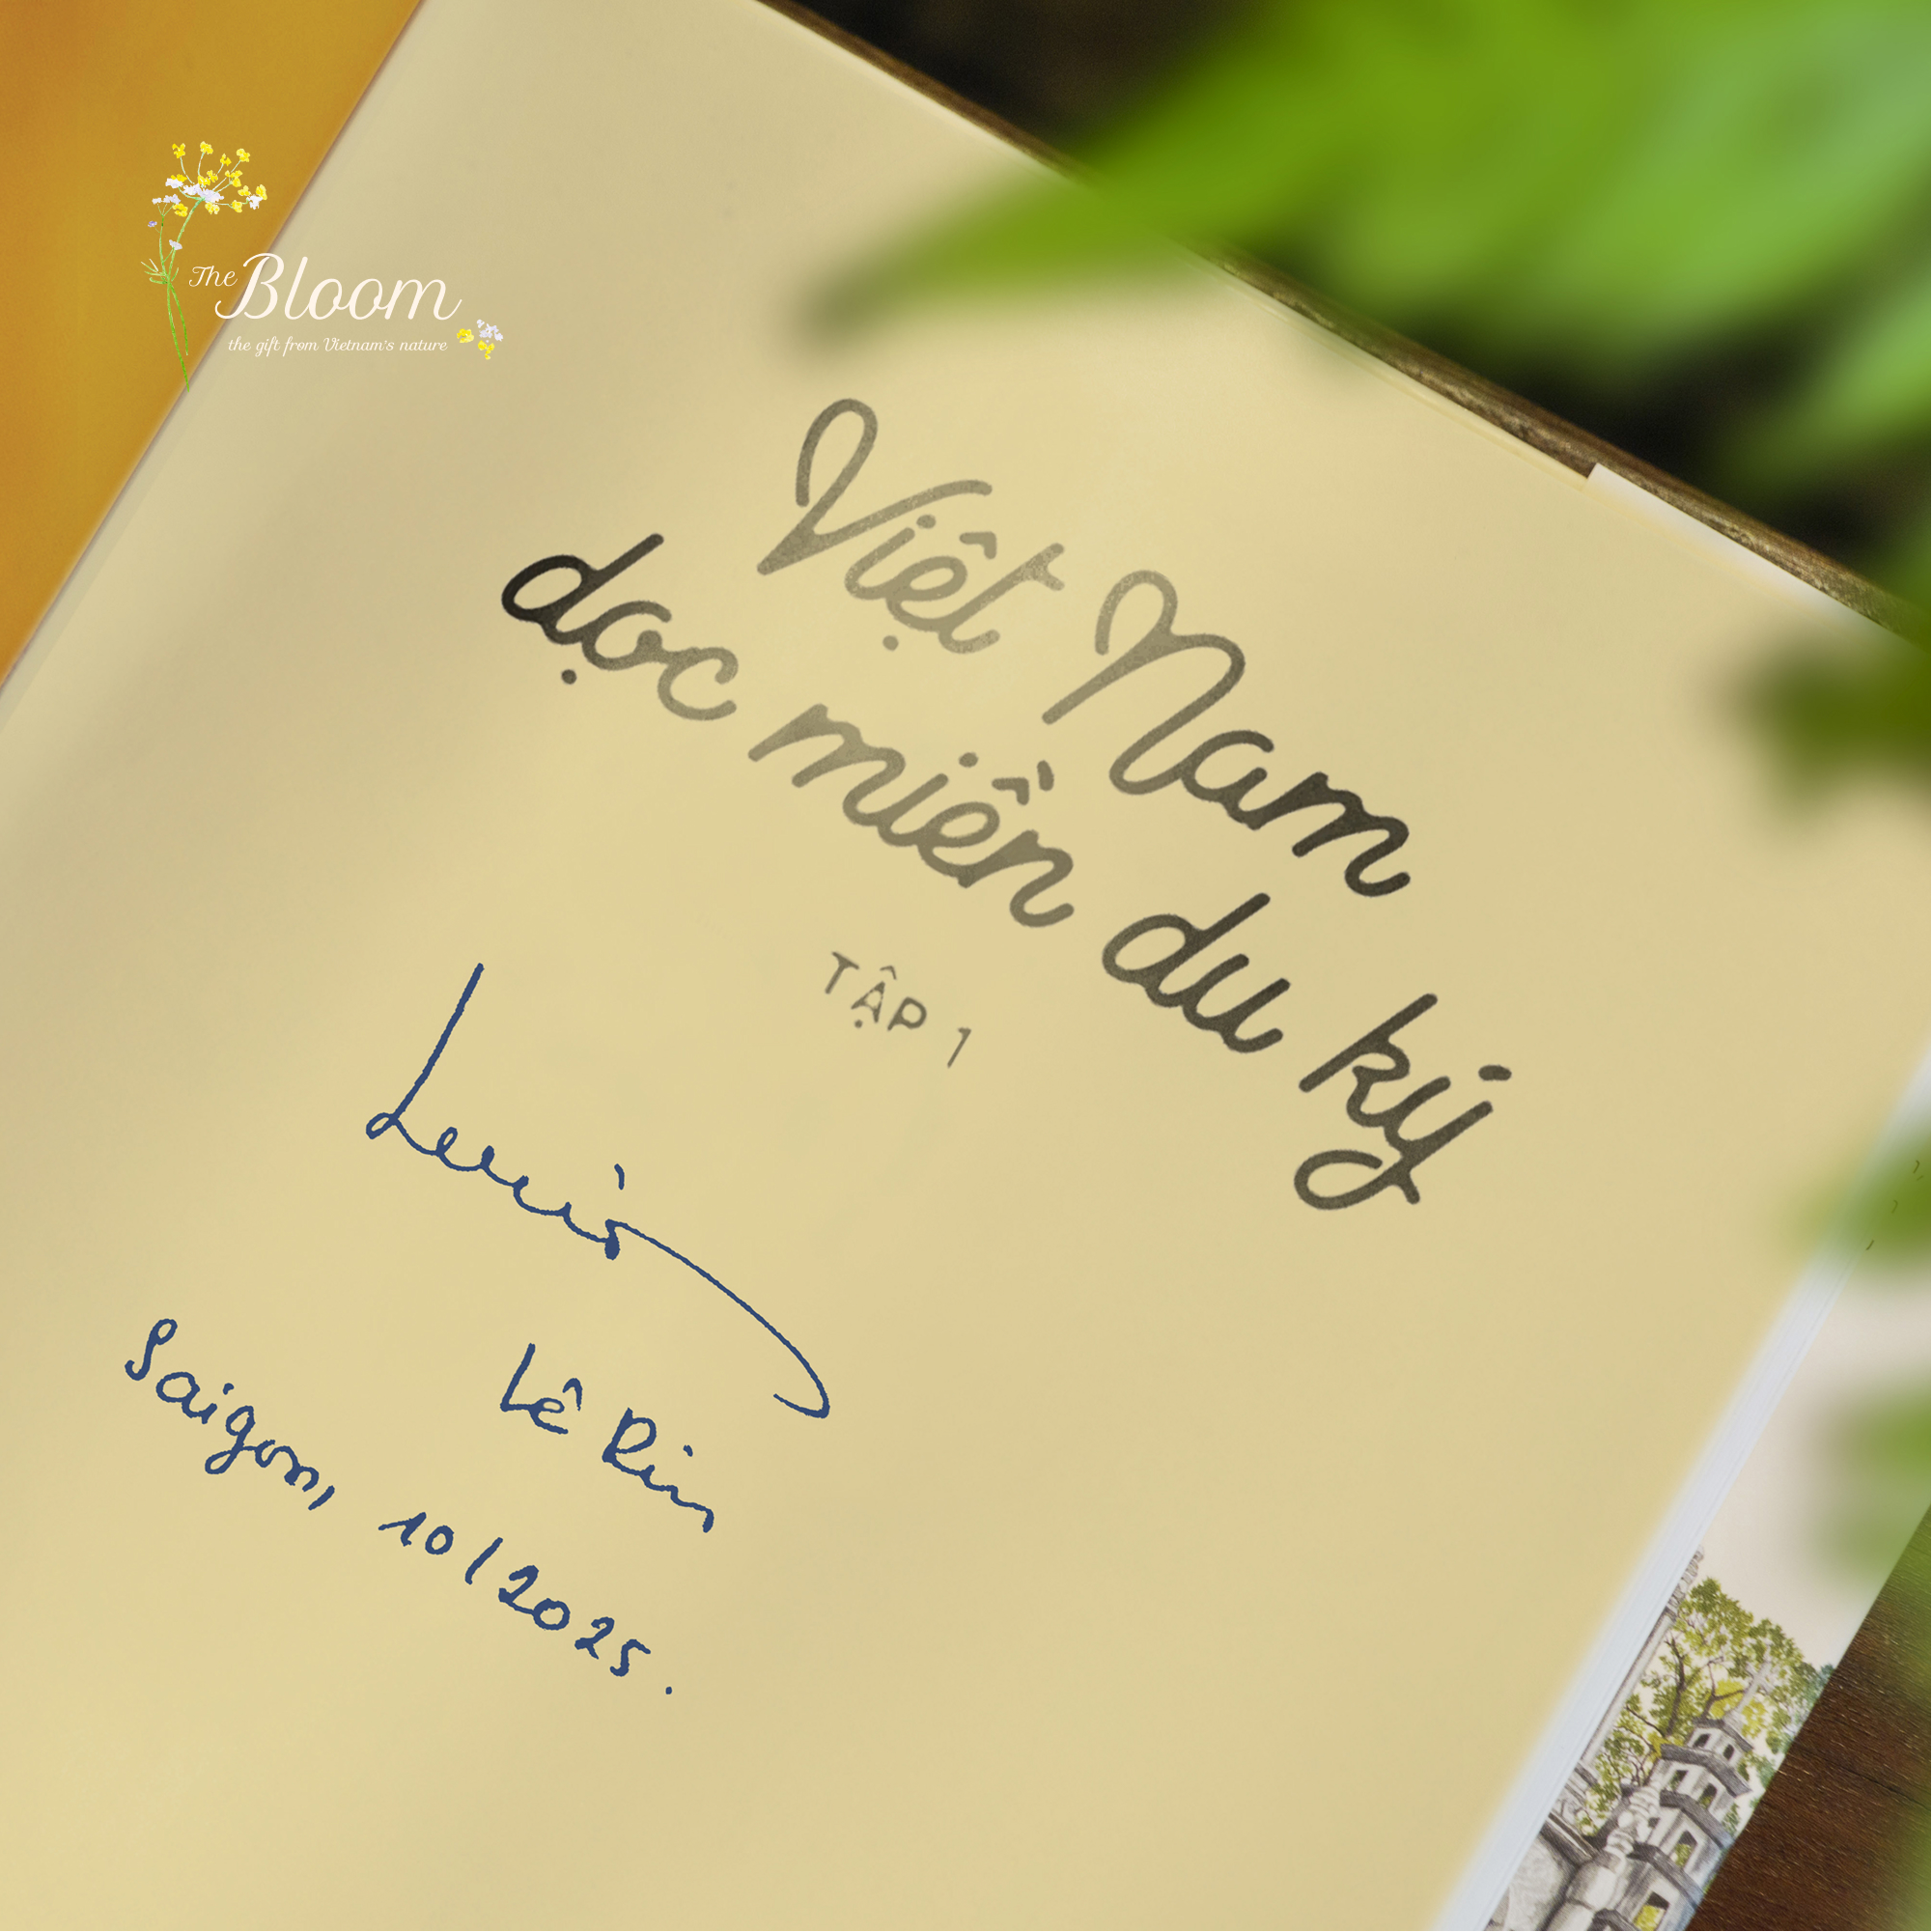 The Bloom
the gift from Vietnam's nature
Việt Nam
dọc miền du ký
TẬP 1
Lê Rin
Saigon, 10/2025.